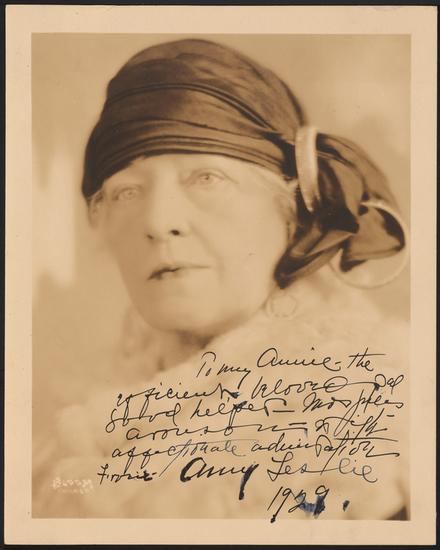 To my Annie - the
efficient, beloved and
good helper -
Aronson - with
affectionate admiration
From Amy Leslie
1929.
Bloom
Chicago